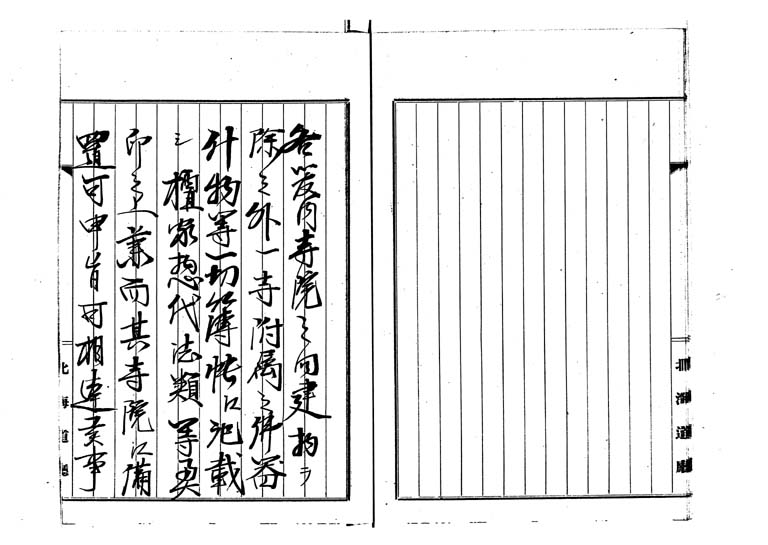 北海道廳
各管内寺院之内建物ヲ
除之外一寺附属之佛器
什物等一切簿帳ニ記載
シ檀家惣代法類等奥
印之上兼而其寺院ニ備
置可申旨可相達其事
北海道廳